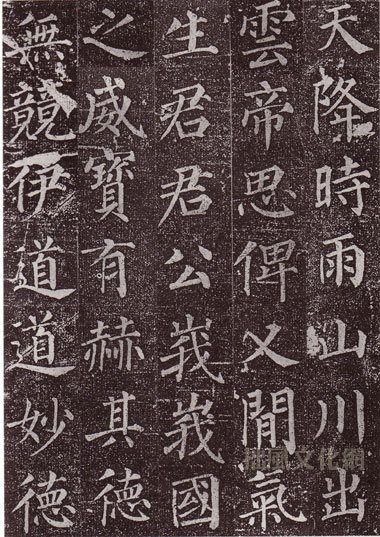 天降時雨山川出
雲帝思俾乂間氣
生君君公峩峩國
之威寶有赫其德
無競伊道道妙德
風文化網